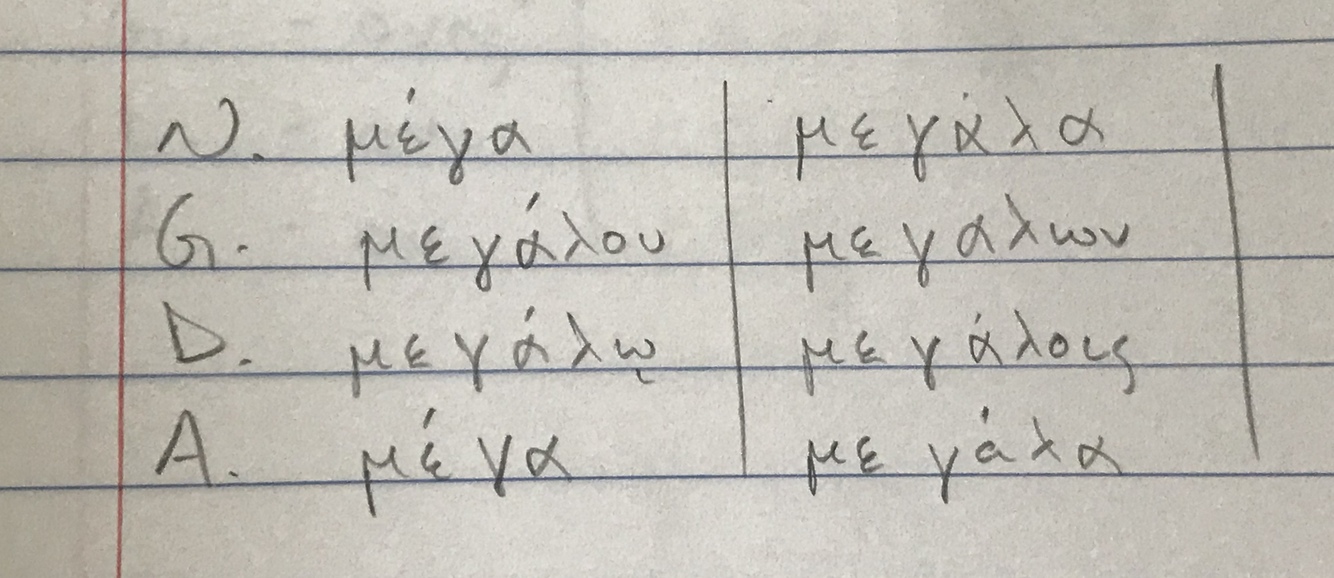 N. μέγα μεγάλα
G. μεγάλου μεγάλων
D. μεγάλῳ μεγάλοις
A. μέγα μεγάλα